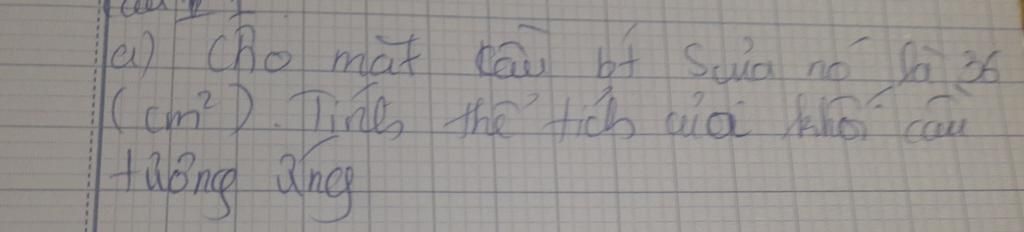 a) Cho mặt cầu bt S của nó là 36
(cm²). Tính thể tích của khối cầu
tương ứng